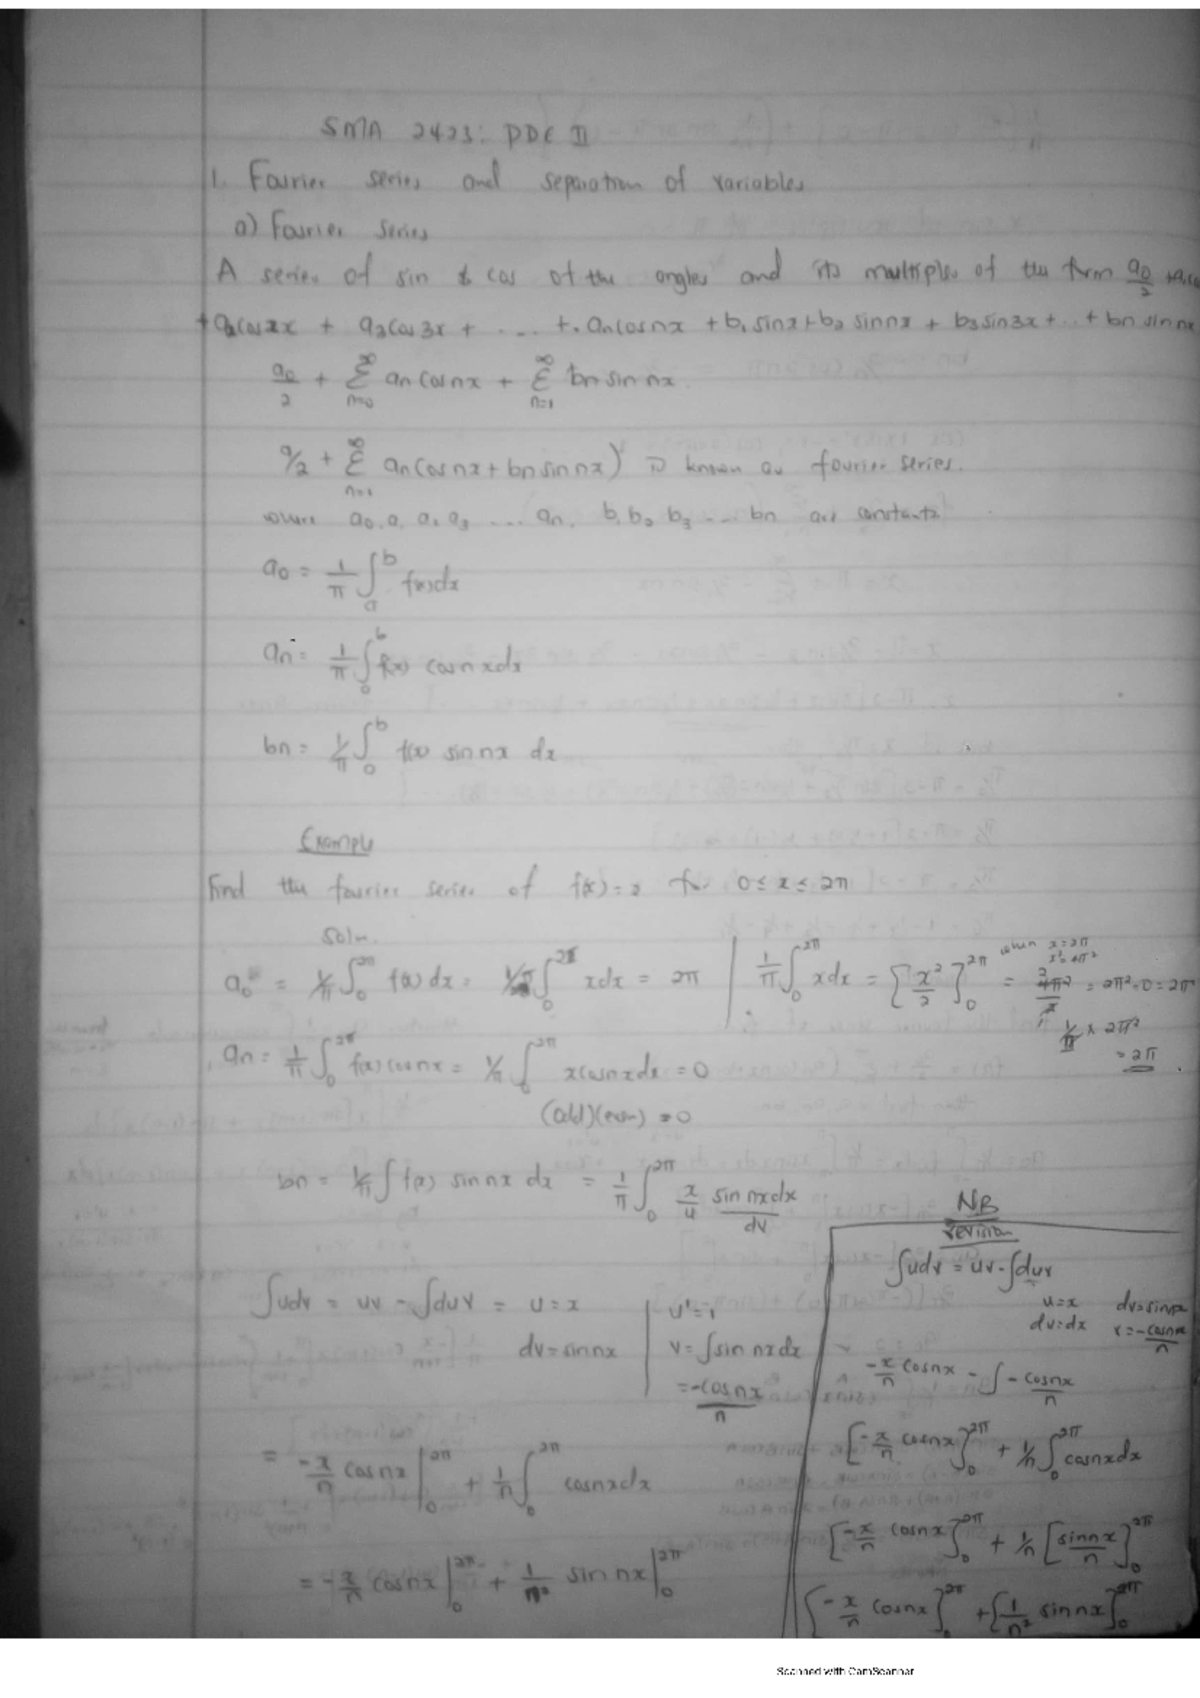 SMA 2423: PDE II
1. Fourier series and separation of variables
a) Fourier series
A series of sin & cos of the angles and its multiples of the form a0/2 + a1 co
+ a2cos2x + a3cos3x + .... +. an cosnx + b1 sinx + b2 sinnx + b3 sin3x + .. + bn sin nx
a0/2 + ∑_{n=0}^{∞} an cosnx + ∑_{n=1}^{∞} bn sin nx
a/2 + ∑_{n=1}^{∞} an cosnx + bn sinnx) is known as fourier series.
where a0, a, a, a3 ... an, b, b2 b3 ... bn are constants
a0 = 1/π ∫_a^b f(x)dx
an = 1/π ∫_0^b f(x) cosnxdx
bn = 1/π ∫_0^b f(x) sin nx dx
Example
Find the fourier series of f(x) = 2 for 0 ≤ x ≤ 2π
Soln.
a0 = 1/π ∫_0^{2π} f(x)dx = 1/π ∫_0^{2π} xdx = 2π | 1/π ∫_0^{2π} xdx = [x²/2]_0^{2π} = 4π²/2 = 2π²-0 = 2π²
when x = 2π
x² = 4π²
1/π x 2π²
= 2π
an = 1/π ∫_0^{2π} f(x) cosnx = 1/π ∫_0^{2π} xcosnxdx = 0
(odd)(even) = 0
bn = 1/π ∫ f(x) sinnx dx = 1/π ∫_0^{2π} x sin nxdx
u dv
∫udv = uv - ∫duv = u = x | u' = 1
dv = sinnx | v = ∫sin nxdx
= -cosnx/n
= -x/n cosnx |_0^{2π} + 1/n ∫_0^{2π} cosnxdx
= -x/n cosnx |_0^{2π} + 1/n² sin nx |_0^{2π}
NB
revision
∫udv = uv - ∫duv
u = x dv = sinnx
dv = dx v = -cosnx/n
-x/n cosnx - ∫ -cosnx/n
[-x/n cosnx]_0^{2π} + 1/n ∫_0^{2π} cosnxdx
[-x/n cosnx]_0^{2π} + 1/n [sinnx/n]_0^{2π}
[-x/n cosnx]_0^{2π} + [1/n² sinnx]_0^{2π}
Scanned with CamScanner